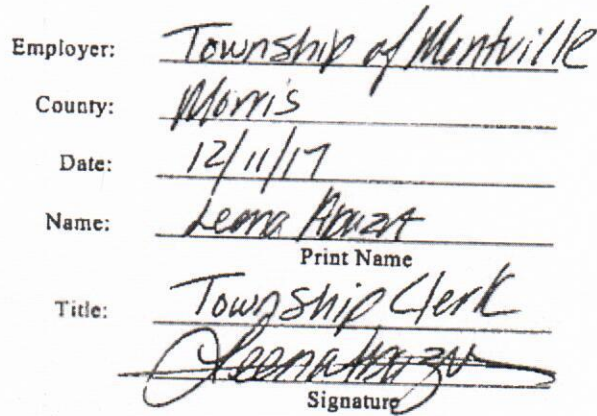 Employer: Township of Montville
County: Morris
Date: 12/11/17
Name: Leena Abaza
Print Name
Title: Township Clerk
Leena Abaza
Signature